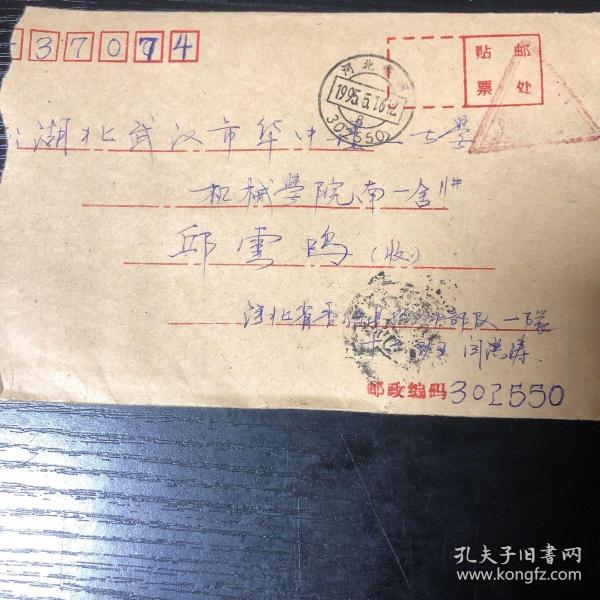 37074
贴 邮
票 处
河北香河
1995.5.16
8
302550
湖北武汉市华中理工大学
机械学院南一舍
邱云鸣(收)
河北省香河县 部队一
闫洪涛
邮政编码302550
孔夫子旧书网
www.kongfz.com